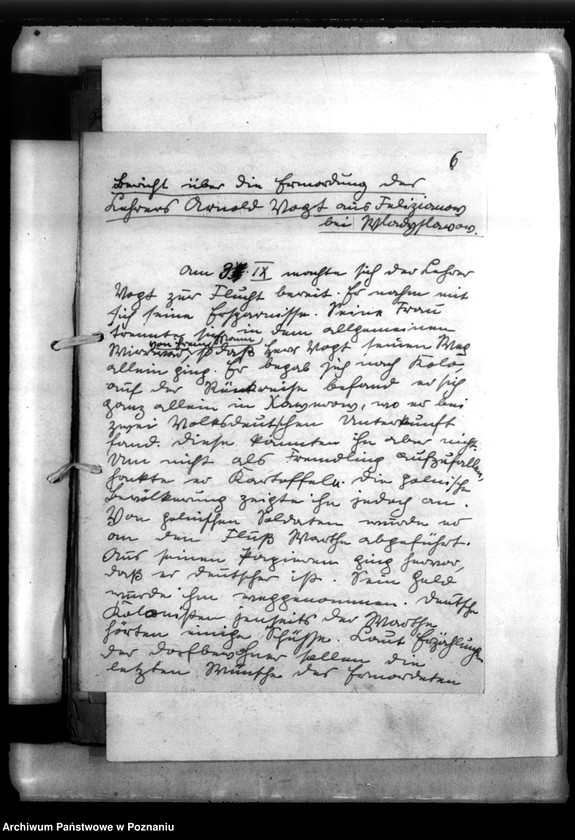 6
Bericht über die Ermordung des
Lehrers Arnold Vogt aus Felizianow
bei Wladyslawow.
Am 3. IX machte sich der Lehrer
Vogt zur Flucht bereit. Er nahm mit
sich seine Ersparnisse. Seine Frau
trennte sich in dem allgemeinen
von ihrem Manne
Wirrwar, so daß Herr Vogt seinen Weg
allein ging. Er begab sich nach Kolo,
auf der Rückreise befand er sich
ganz allein in Xawerow, wo er bei
zwei Volksdeutschen Unterkunft
fand. Diese kannten ihn aber nicht.
Um nicht als Fremdling aufzufallen,
hackte er Kartoffeln. Die polnische
Bevölkerung zeigte ihn jedoch an.
Von polnischen Soldaten wurde er
an den Fluß Warthe abgeführt.
Aus seinen Papieren ging hervor,
daß er Deutscher ist. Sein Geld
wurde ihm weggenommen. Deutsche
Kolonisten jenseits der Warthe
hörten einige Schüsse. Laut Erzählung
der Dorfbewohner sollen die
letzten Wünsche des Ermordeten
Archiwum Państwowe w Poznaniu